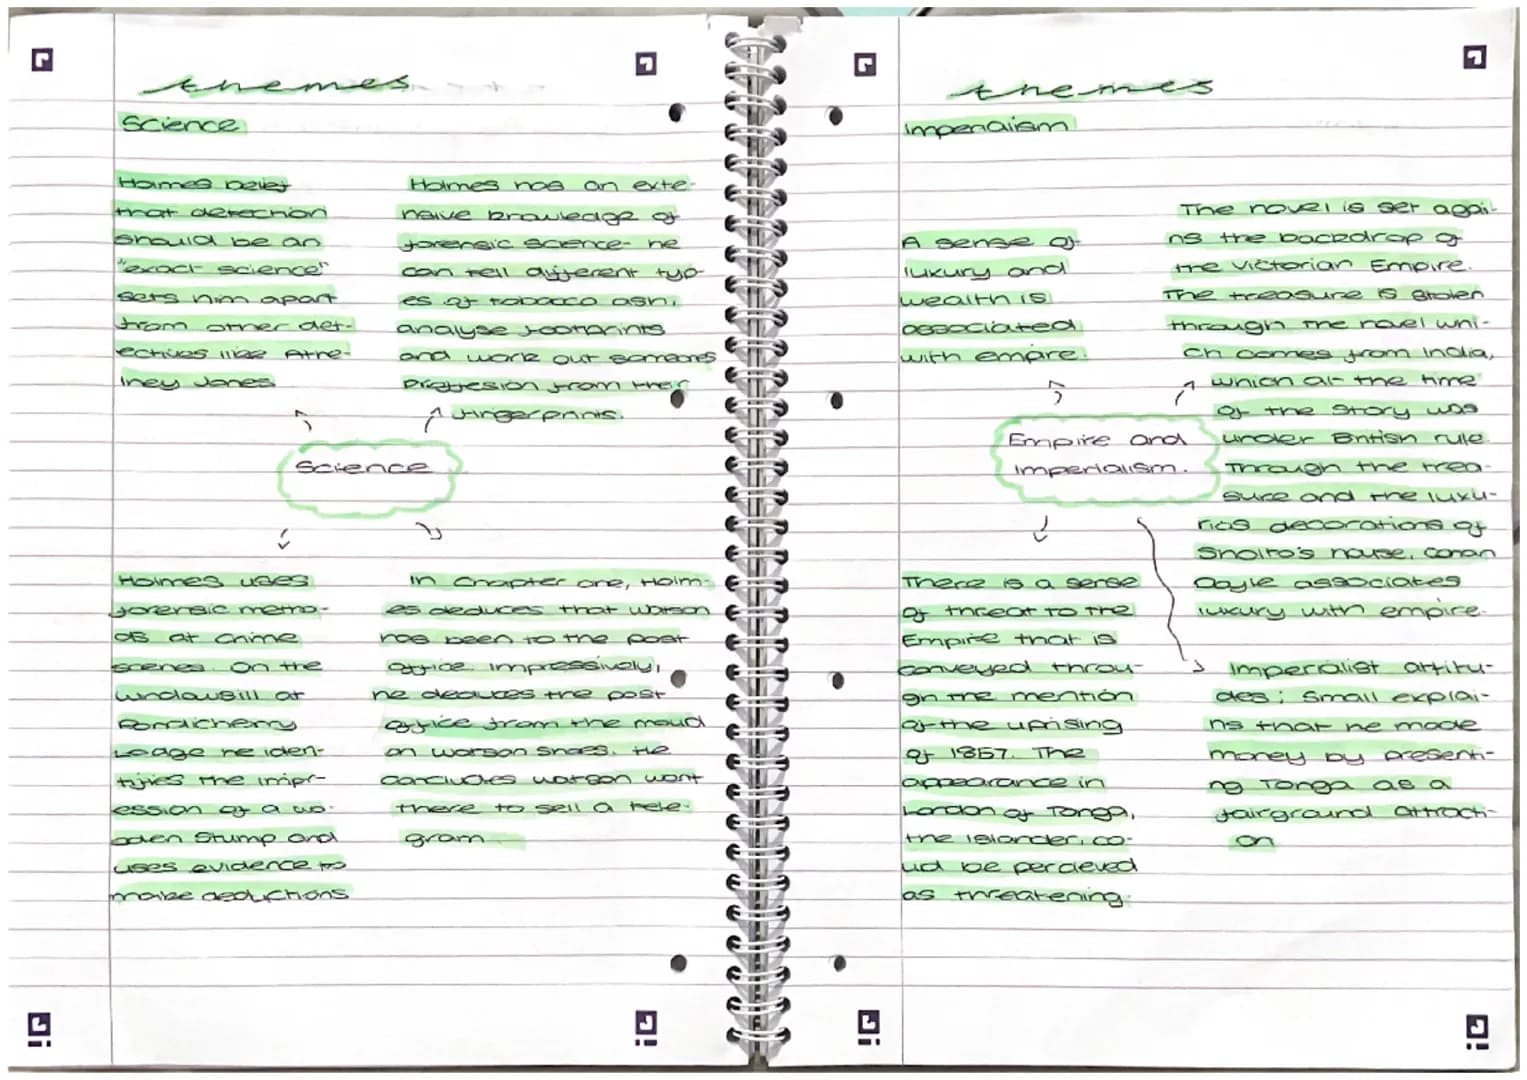 themes
Science
Holmes belief
that detection
should be an
"exact science"
sets him apart
from other det-
ectives like Athe-
lney Jones
Holmes has an exte-
nsive knowledge of
forensic science- he
can tell different typ-
es of tobacco ash,
analyse footprints
and work out someones
profesion from their
fingerprints.
Science
Holmes uses
forensic metho-
ds at crime
scenes. On the
windowsill at
Pondicherry
Lodge he iden-
tifies the impr-
ession of a wo-
oden stump and
uses evidence to
make deductions
In Chapter one, Holm-
es deduces that Watson
has been to the post
office impressively,
he deduces the post
office from the moud
on Watson shoes. He
concludes Watson went
there to sell a tele-
gram
themes
Imperialism
A sense of
luxury and
wealth is
associated
with empire.
The novel is set agai-
ns the backdrop of
the Victorian Empire.
The treasure is stolen
through the novel whi-
ch comes from India,
which at the time
of the story was
under British rule.
Through the trea-
sure and the luxu-
rios decorations of
Sholto's house, Conan
Doyle associates
luxury with empire.
Empire and
imperialism.
There is a sense
of threat to the
Empire that is
conveyed throu-
gh the mention
of the uprising
of 1857. The
appearance in
London of Tonga,
the islander, co-
uld be percieved
as threatening.
Imperialist attitu-
des; Small explai-
ns that he made
money by presenti-
ng Tonga as a
fairground attracti-
on